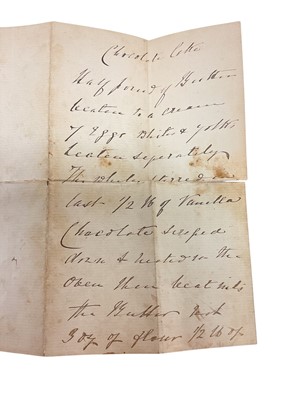 Chocolate Cake
Half pound of Butter
beaten to a cream
7 Eggs Whites & yolks
beaten seperately
The Whites stirred in
last 1/2 lb of Vanilla
Chocolate scraped
down & heated in the
Oven then beat into
the Butter next
3 oz of flour 1/2 lb of